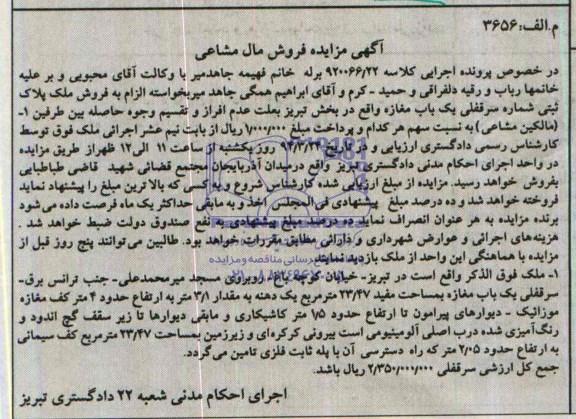 م.الف: ۳۶۵۶
آگهی مزایده فروش مال مشاعی
در خصوص پرونده اجرایی کلاسه ۹۲۰۰۶۶/۲۲ برله خانم فهیمه جاهدمیر با وکالت آقای محبوبی و بر علیه
خانمها رباب و رقیه دلفراقی و حمید - کرم و آقای ابراهیم همگی جاهد میربخواسته الزام به فروش ملک پلاک
ثبتی شماره سرقفلی یک باب مغازه واقع در بخش تبریز بعلت عدم افراز و تقسیم وجوه حاصله بین طرفین ۱-
(مالکین مشاعی) به نسبت سهم هر کدام و پرداخت مبلغ ۱/۰۰۰/۰۰۰ ریال از بابت نیم عشر اجرائی ملک فوق توسط
کارشناس رسمی دادگستری ارزیابی و در تاریخ ۹۴/۳/۲۴ روز یکشنبه از ساعت ۱۱ الی ۱۲ ظهراز طریق مزایده
در واحد اجرای احکام مدنی دادگستری تبریز واقع درمیدان آذربایجان مجتمع قضائی شهید قاضی طباطبایی
بفروش خواهد رسید. مزایده از مبلغ ارزیابی شده کارشناس شروع و به کسی که بالا ترین مبلغ را پیشنهاد نماید
فروخته خواهد شد و ده درصد مبلغ پیشنهادی فی المجلس اخذ و به مابقی حداکثر یک ماه فرصت داده می شود
برنده مزایده به هر عنوان انصراف نماید ده درصد مبلغ پیشنهادی به نفع صندوق دولت ضبط خواهد شد .
هزینه‌های اجرائی و عوارض شهرداری و دارائی مطابق مقررات خواهد بود. طالبین می توانند پنج روز قبل از
مزایده با هماهنگی این واحد از ملک بازدید نمایند
۱- ملک فوق الذکر واقع است در تبریز- خیابان کوچه باغ، روبروی مسجد میرمحمدعلی- جنب ترانس برق-
سرقفلی یک باب مغازه بمساحت مفید ۲۳/۴۷ مترمربع یک دهنه به مقدار ۳/۱ متر به ارتفاع حدود ۴ متر کف مغازه
موزائیک - دیوارهای پیرامون تا ارتفاع حدود ۱/۵ متر کاشیکاری و مابقی دیوارها تا زیر سقف گچ اندود و
رنگ آمیزی شده درب اصلی آلومینیومی است بیرونی کرکره ای و زیرزمین بمساحت ۲۳/۴۷ مترمربع کف سیمانی
به ارتفاع حدود ۲/۰۵ متر که راه دسترسی آن با پله ثابت فلزی تامین می گردد.
جمع کل ارزشی سرقفلی ۲/۳۵۰/۰۰۰/۰۰۰ ریال باشد.
اجرای احکام مدنی شعبه ۲۲ دادگستری تبریز